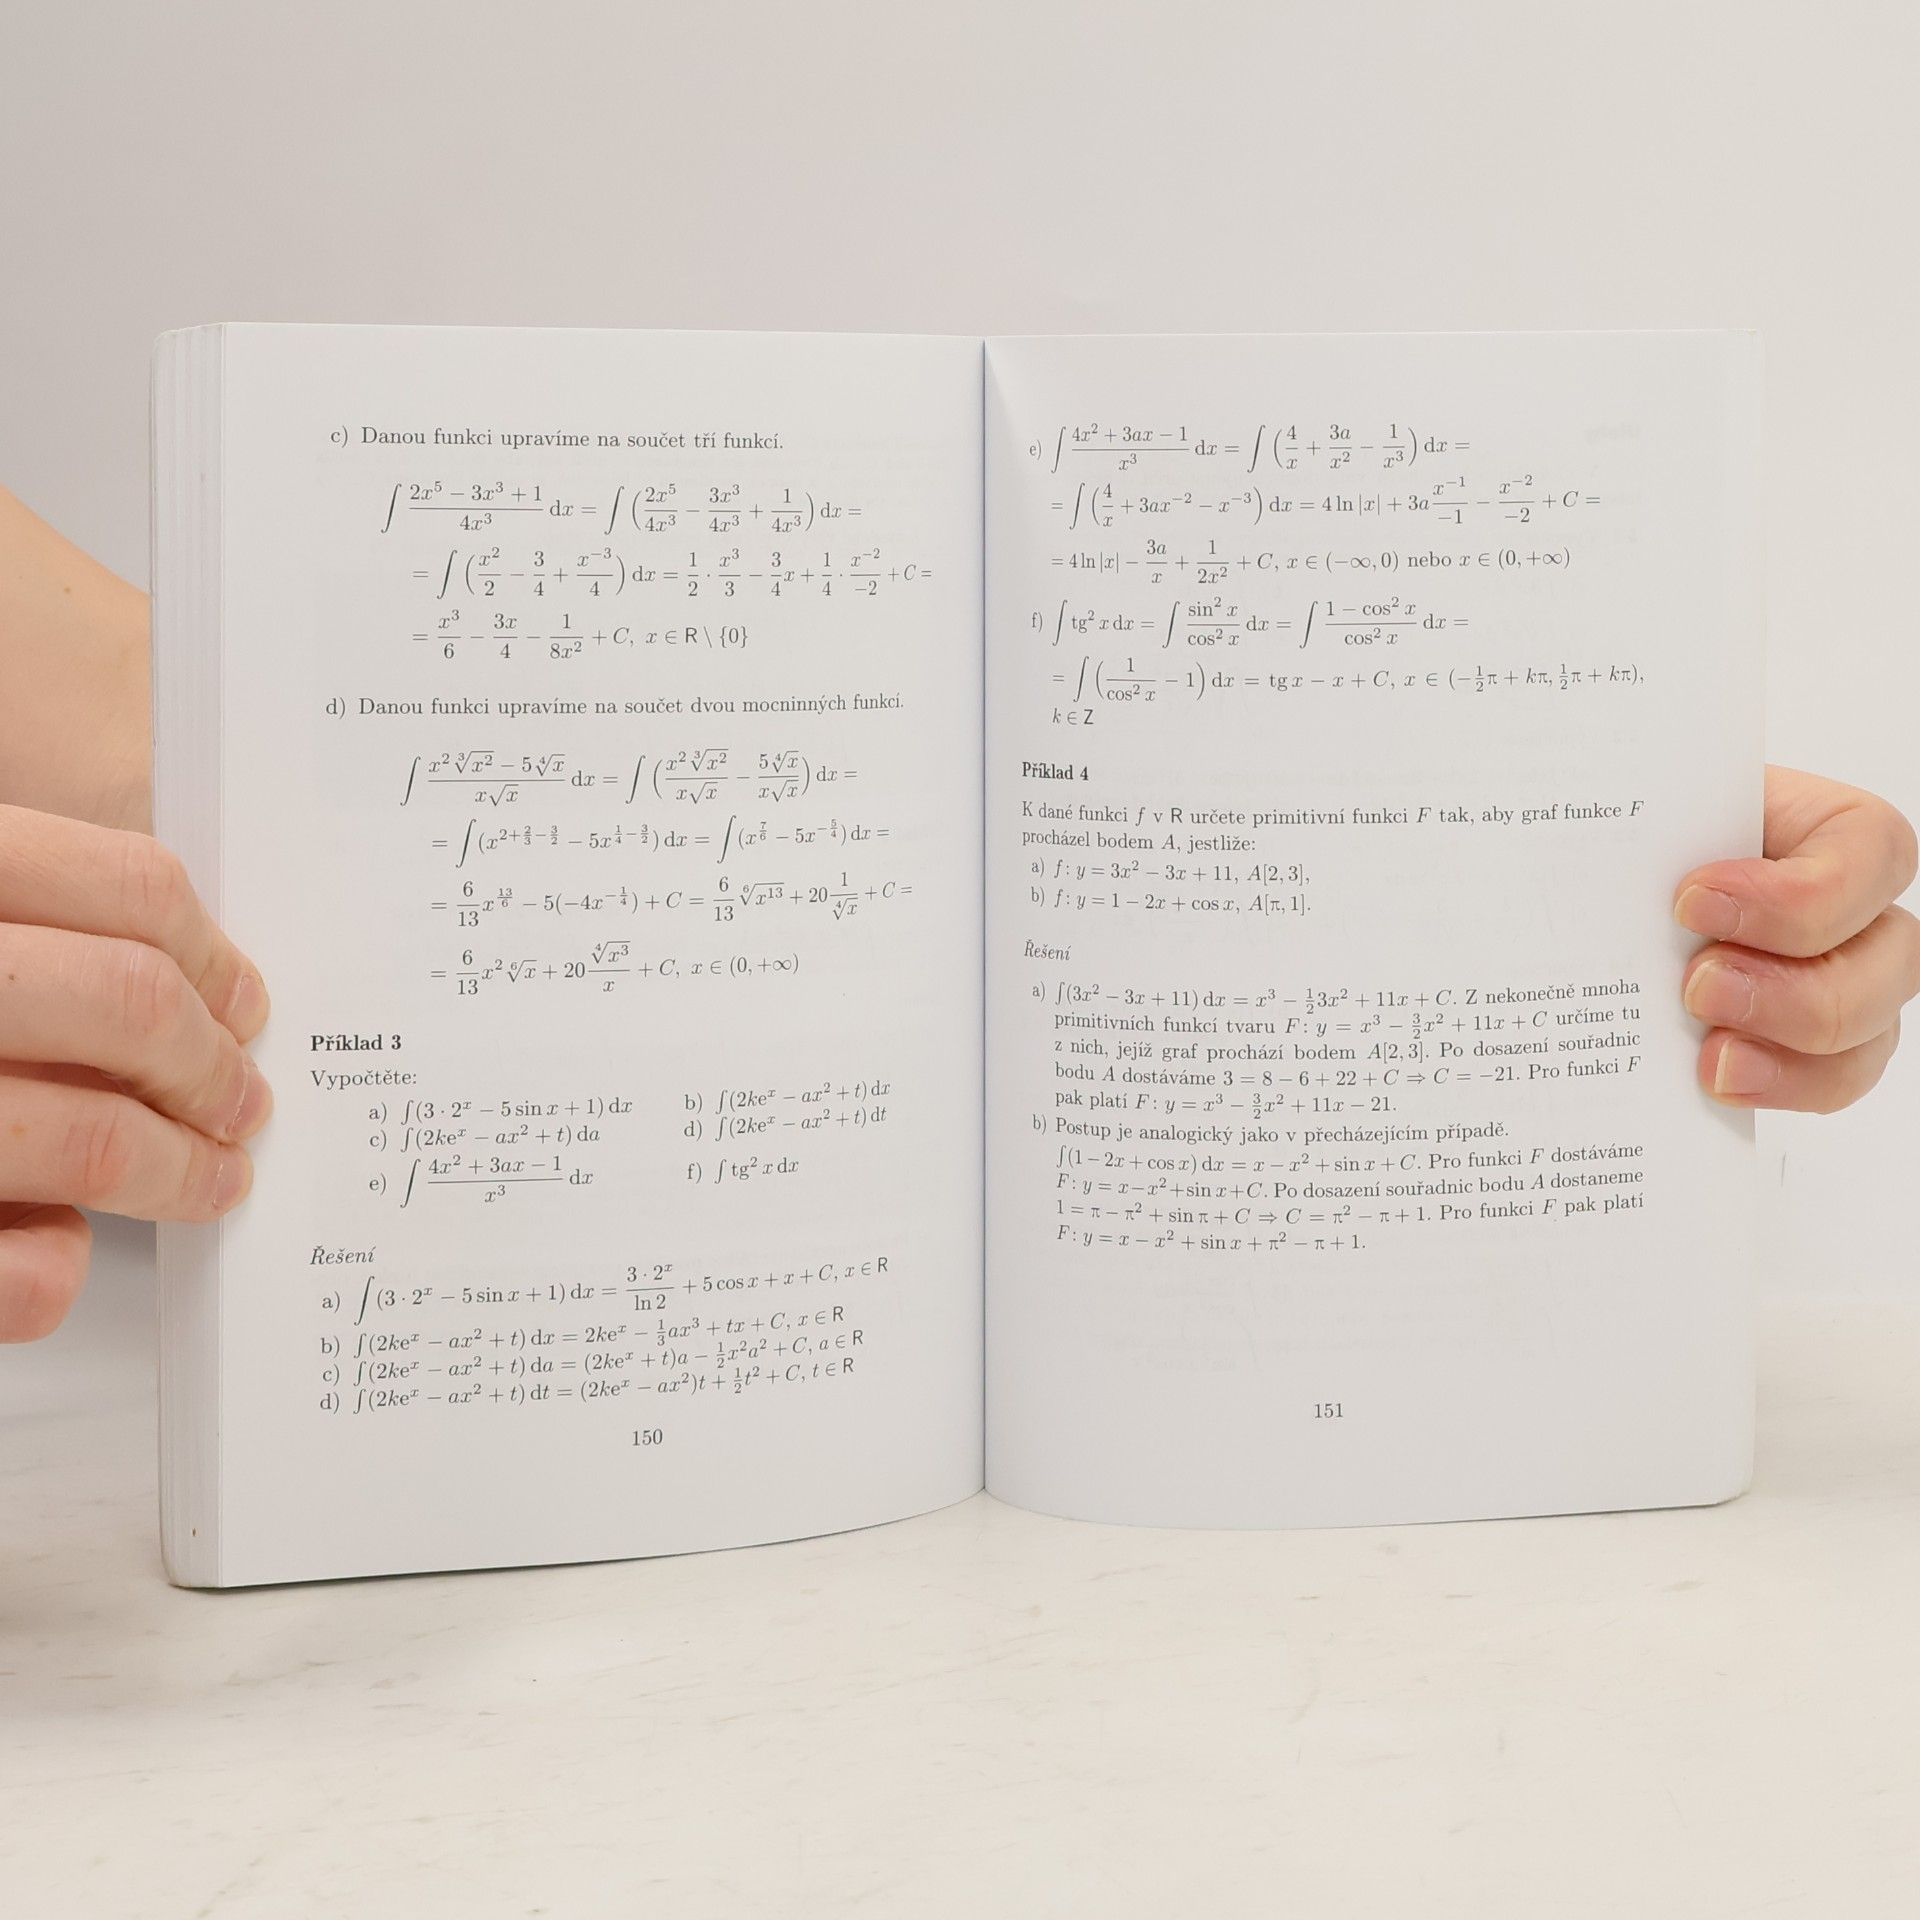 c) Danou funkci upravíme na součet tří funkcí.
∫ (2x⁵ − 3x³ + 1)/(4x³) dx = ∫ (2x⁵/4x³ − 3x³/4x³ + 1/4x³) dx =
= ∫ (x²/2 − 3/4 + x⁻³/4) dx = 1/2 · x³/3 − 3/4 x + 1/4 · x⁻²/−2 + C =
= x³/6 − 3x/4 − 1/8x² + C, x ∈ R \ {0}
d) Danou funkci upravíme na součet dvou mocninných funkcí.
∫ (x² ∛x² − 5 ∜x)/(x√x) dx = ∫ (x² ∛x²/x√x − 5 ∜x/x√x) dx =
= ∫ (x^(2+2/3−3/2) − 5x^(1/4−3/2)) dx = ∫ (x^(7/6) − 5x^(−5/4)) dx =
= 6/13 x^(13/6) − 5(−4x^(−1/4)) + C = 6/13 ⁶√x¹³ + 20 1/∜x + C =
= 6/13 x² ⁶√x + 20 ∜x³/x + C, x ∈ (0, +∞)
Příklad 3
Vypočtěte:
a) ∫(3 · 2ˣ − 5 sin x + 1) dx b) ∫(2keˣ − ax² + t) dx
c) ∫(2keˣ − ax² + t) da d) ∫(2keˣ − ax² + t) dt
e) ∫ (4x² + 3ax − 1)/x³ dx f) ∫ tg² x dx
Řešení
a) ∫(3 · 2ˣ − 5 sin x + 1) dx = 3 · 2ˣ/ln 2 + 5 cos x + x + C, x ∈ R
b) ∫(2keˣ − ax² + t) dx = 2keˣ − 1/3 ax³ + tx + C, x ∈ R
c) ∫(2keˣ − ax² + t) da = (2keˣ + t)a − 1/2 x²a² + C, a ∈ R
d) ∫(2keˣ − ax² + t) dt = (2keˣ − ax²)t + 1/2 t² + C, t ∈ R
150
e) ∫ (4x² + 3ax − 1)/x³ dx = ∫ (4/x + 3a/x² − 1/x³) dx =
= ∫ (4/x + 3ax⁻² − x⁻³) dx = 4 ln |x| + 3a x⁻¹/−1 − x⁻²/−2 + C =
= 4 ln |x| − 3a/x + 1/2x² + C, x ∈ (−∞, 0) nebo x ∈ (0, +∞)
f) ∫ tg² x dx = ∫ sin² x/cos² x dx = ∫ (1 − cos² x)/cos² x dx =
= ∫ (1/cos² x − 1) dx = tg x − x + C, x ∈ (−1/2 π + kπ, 1/2 π + kπ),
k ∈ Z
Příklad 4
K dané funkci f v R určete primitivní funkci F tak, aby graf funkce F
procházel bodem A, jestliže:
a) f: y = 3x² − 3x + 11, A[2, 3],
b) f: y = 1 − 2x + cos x, A[π, 1].
Řešení
a) ∫(3x² − 3x + 11) dx = x³ − 1/2 3x² + 11x + C. Z nekonečně mnoha
primitivních funkcí tvaru F: y = x³ − 3/2 x² + 11x + C určíme tu
z nich, jejíž graf prochází bodem A[2, 3]. Po dosazení souřadnic
bodu A dostáváme 3 = 8 − 6 + 22 + C ⇒ C = −21. Pro funkci F
pak platí F: y = x³ − 3/2 x² + 11x − 21.
b) Postup je analogický jako v přecházejícím případě.
∫(1 − 2x + cos x) dx = x − x² + sin x + C. Pro funkci F dostáváme
F: y = x−x²+sin x+C. Po dosazení souřadnic bodu A dostaneme
1 = π − π² + sin π + C ⇒ C = π² − π + 1. Pro funkci F pak platí
F: y = x − x² + sin x + π² − π + 1.
151